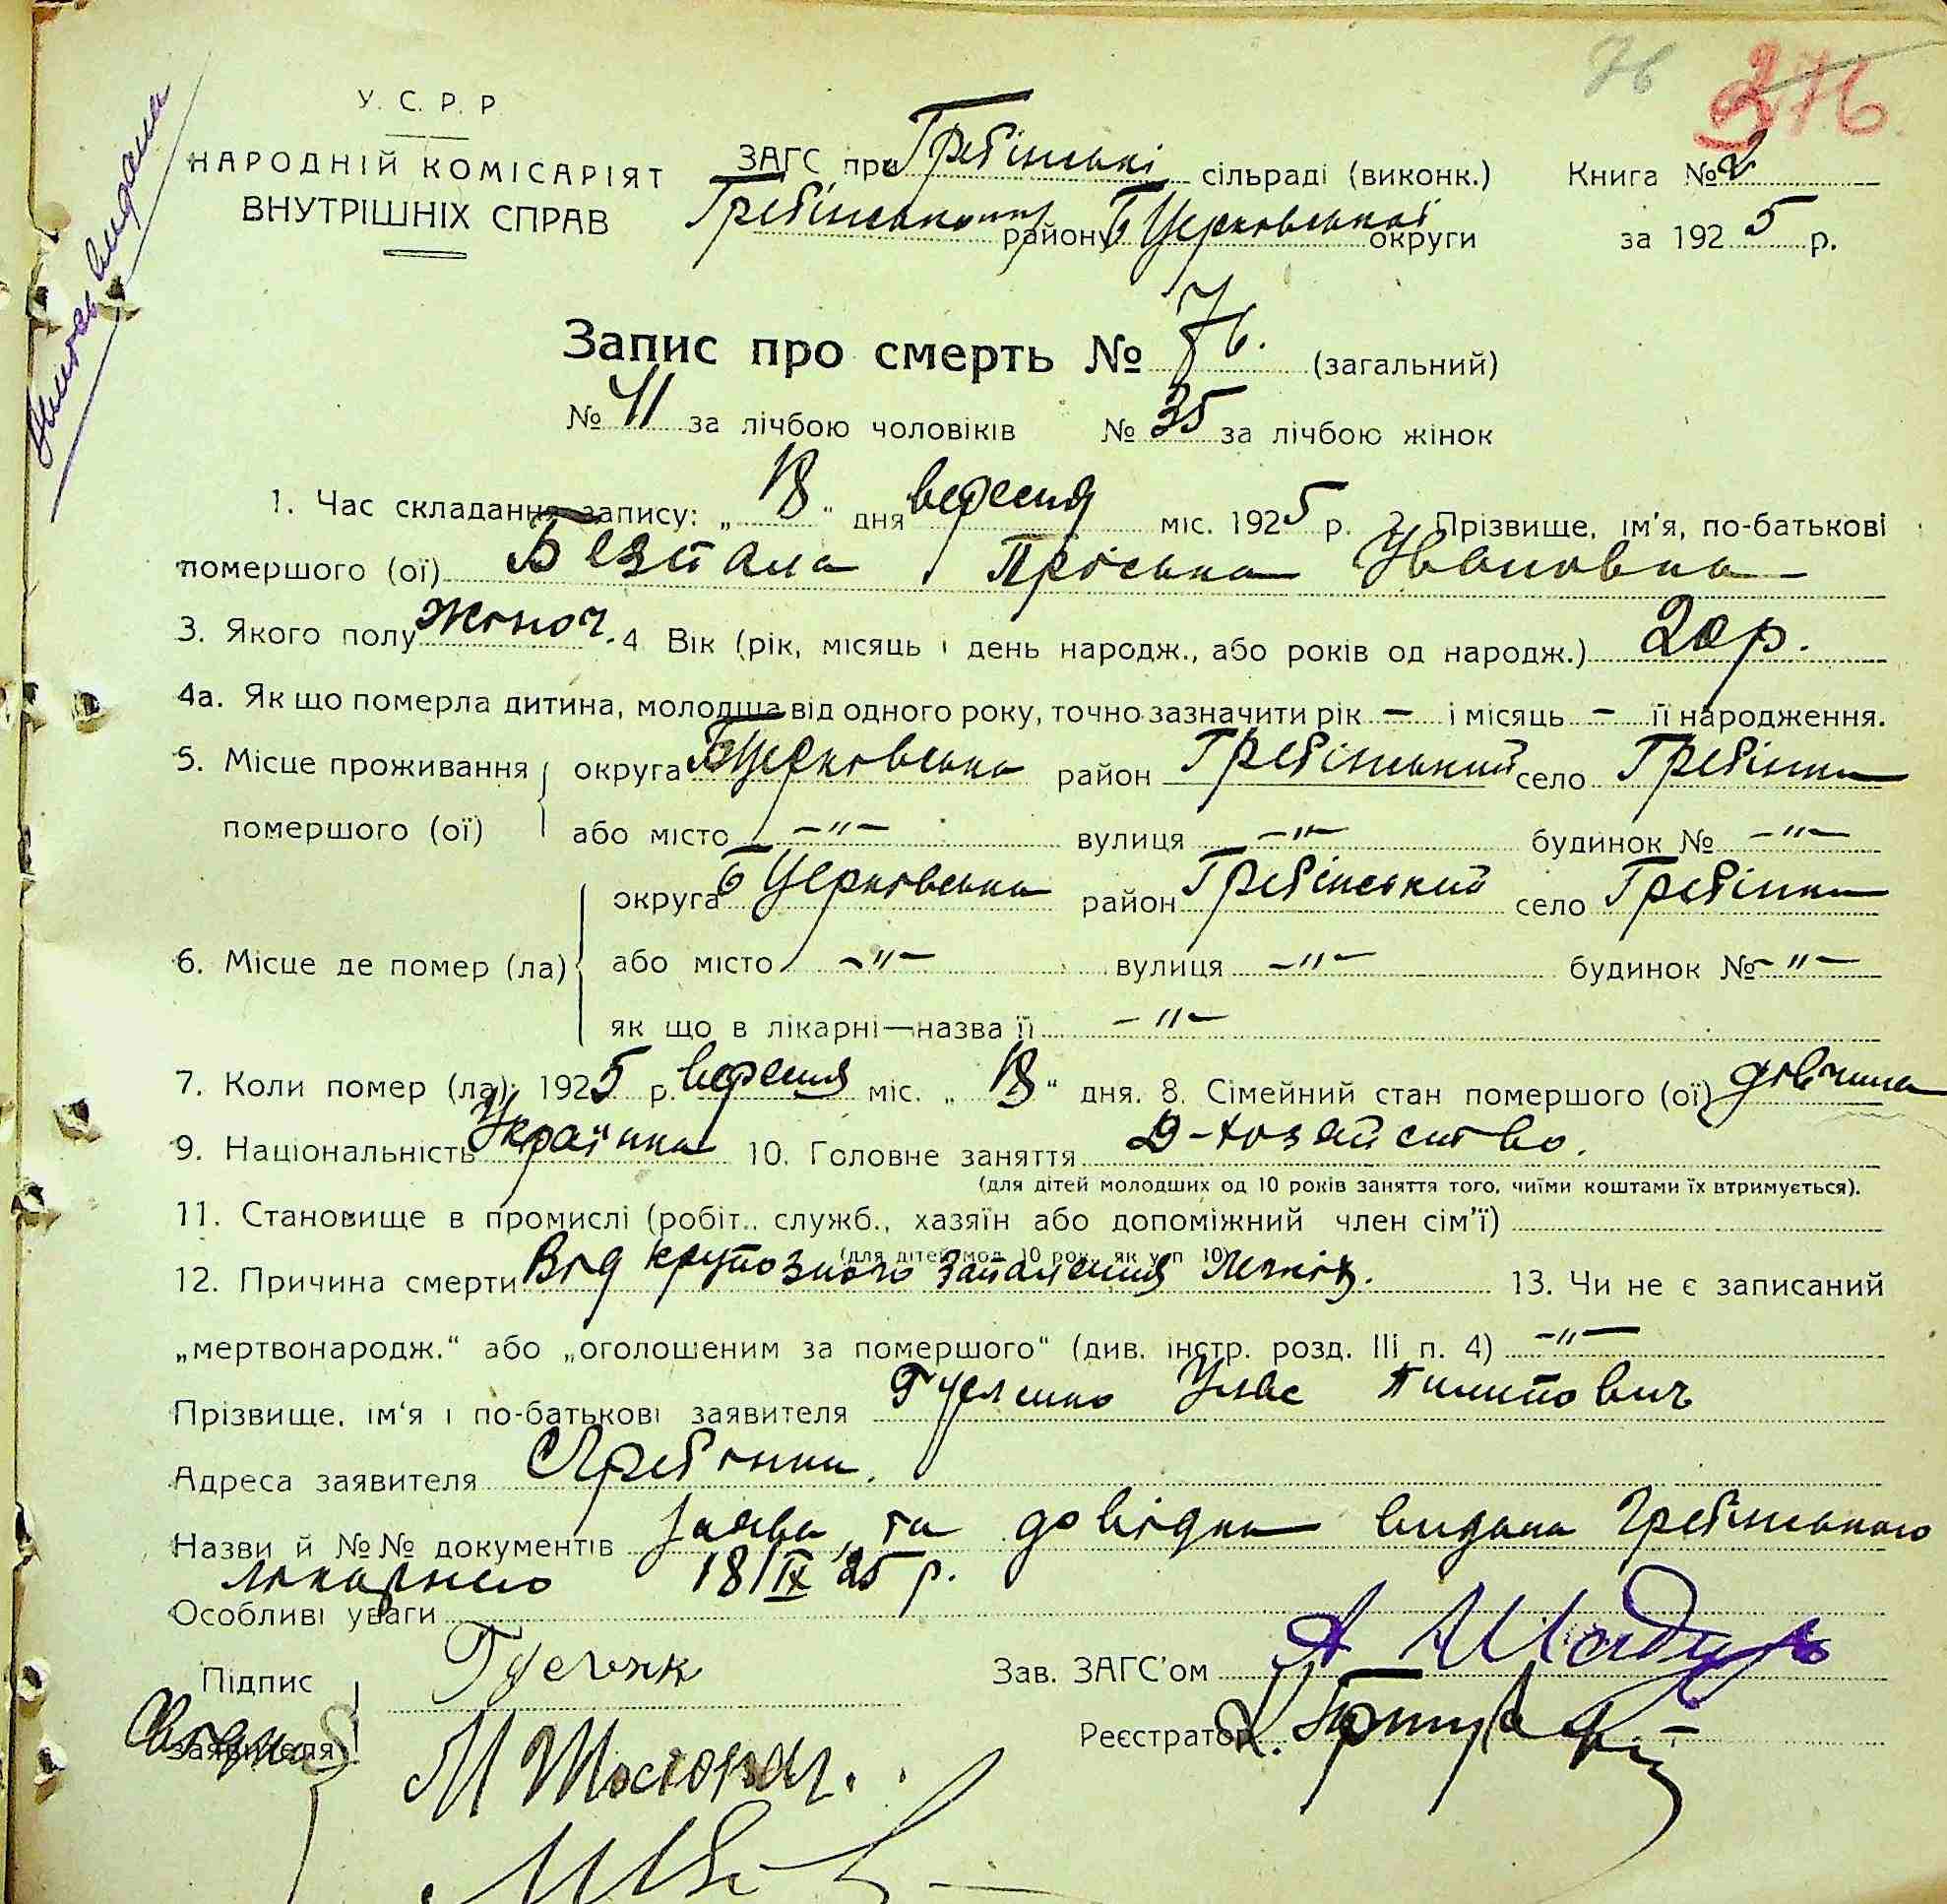 76 376
У. С. Р. Р
НАРОДНІЙ КОМІСАРІЯТ
ВНУТРІШНІХ СПРАВ
ЗАГС при Гребінські сільраді (виконк.) Книга № 2
Гребінського району Б Церковської округи за 1925 р.
видана
Запис про смерть № 76. (загальний)
№ 41 за лічбою чоловіків № 35 за лічбою жінок
1. Час складання запису: „18" дня вересня міс. 1925 р. 2. Прізвище, ім'я, по-батькові
помершого (ої) Безпала Пріська Ивановна
3. Якого полу жіноч. 4 Вік (рік, місяць і день народж., або років од народж.) 20 р.
4а. Як що померла дитина, молодша від одного року, точно зазначити рік — і місяць — її народження.
5. Місце проживання округа БЦерковська район Гребінський село Гребінки
помершого (ої) або місто —"— вулиця —"— будинок № —"—
округа Б Церковська район Гребінський село Гребінки
6. Місце де помер (ла) або місто —"— вулиця —"— будинок № —"—
як що в лікарні—назва її —"—
7. Коли помер (ла): 1925 р. вересня міс. „18" дня. 8. Сімейний стан помершого (ої) дівчина
9. Національність Українка 10. Головне заняття Д-хозяйство.
(для дітей молодших од 10 років заняття того, чиїми коштами їх втримується).
11. Становище в промислі (робіт., служб., хазяїн або допоміжний член сім'ї)
(для дітей мол. 10 рок. як у п 10)
12. Причина смерти Від крупозного запалення легків. 13. Чи не є записаний
„мертвонародж." або „оголошеним за помершого" (див. інстр. розд. III п. 4) —"—
Прізвище, ім'я і по-батькові заявителя Улас Пилипович
Адреса заявителя Гребінки.
Назви й №№ документів Заява та довідка видана Гребінського
лікарнею 18/IX 25 р.
Особливі уваги
Підпис Зав. ЗАГС'ом А
заявителя Реєстратор
М